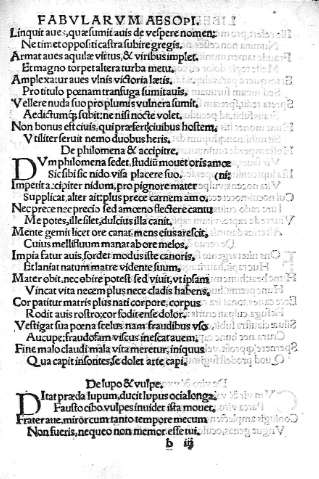 FABVLARVM AESOPI.
Linquit aues, quæ sumit auis de vespere nomen:
Ne timet oppositi castra subire gregis.
Armat aues aquilæ virtus, & viribus implet.
Et magno torpet altera turba metu.
Amplexatur aues vlnis victoria lætis,
Pro titulo pœnam transfuga sumit auis.
Vellere nuda suo pro plumis vulnera sumit,
Aedictum subit: ne nisi nocte volet.
Non bonus est ciuis, qui præfert ciuibus hostem,
Vtiliter seruit nemo duobus heris.
De philomena & accipitre.
DVm philomena sedet, studiū mouet oris amœ
Sic sibi sic nido visa placere suo. (ni:
Imperit accipiter nidum, pro pignore mater
Supplicat, alter ait: plus prece carmen amo.
Nec prece nec precio sed amœno flectere cantu
Me potes, ille silet, dulcius illa canit.
Mente gemit licet ore canat, mens eius arescit,
Cuius mellifluum manat ab ore melos.
Impia fatur auis, sordet modus iste canoris,
Et laniat natum matre vidente suum.
Mater obit, nec obire potest sed viuit, vt ipsam
Vincat vita necem plus nece cladis habens,
Cor patitur matris plus nati corpore, corpus
Rodit auis rostro, cor fodit ense dolor.
Vestigat sua pœna scelus nam fraudibus vso
Aucupe, fraudosam viscus inescat auem.
Fine malo claudi mala vita meretur, iniquus
Qua capit insontes, se dolet arte capi.
De lupo & vulpe.
DItat præda lupum, ducit lupus ocia longa.
Fausto cibo vulpes inuidet ista mouet.
Frater aue, miror cum tanto tempore mecum
Non fueris, nequeo non memor esse tui.
b iij